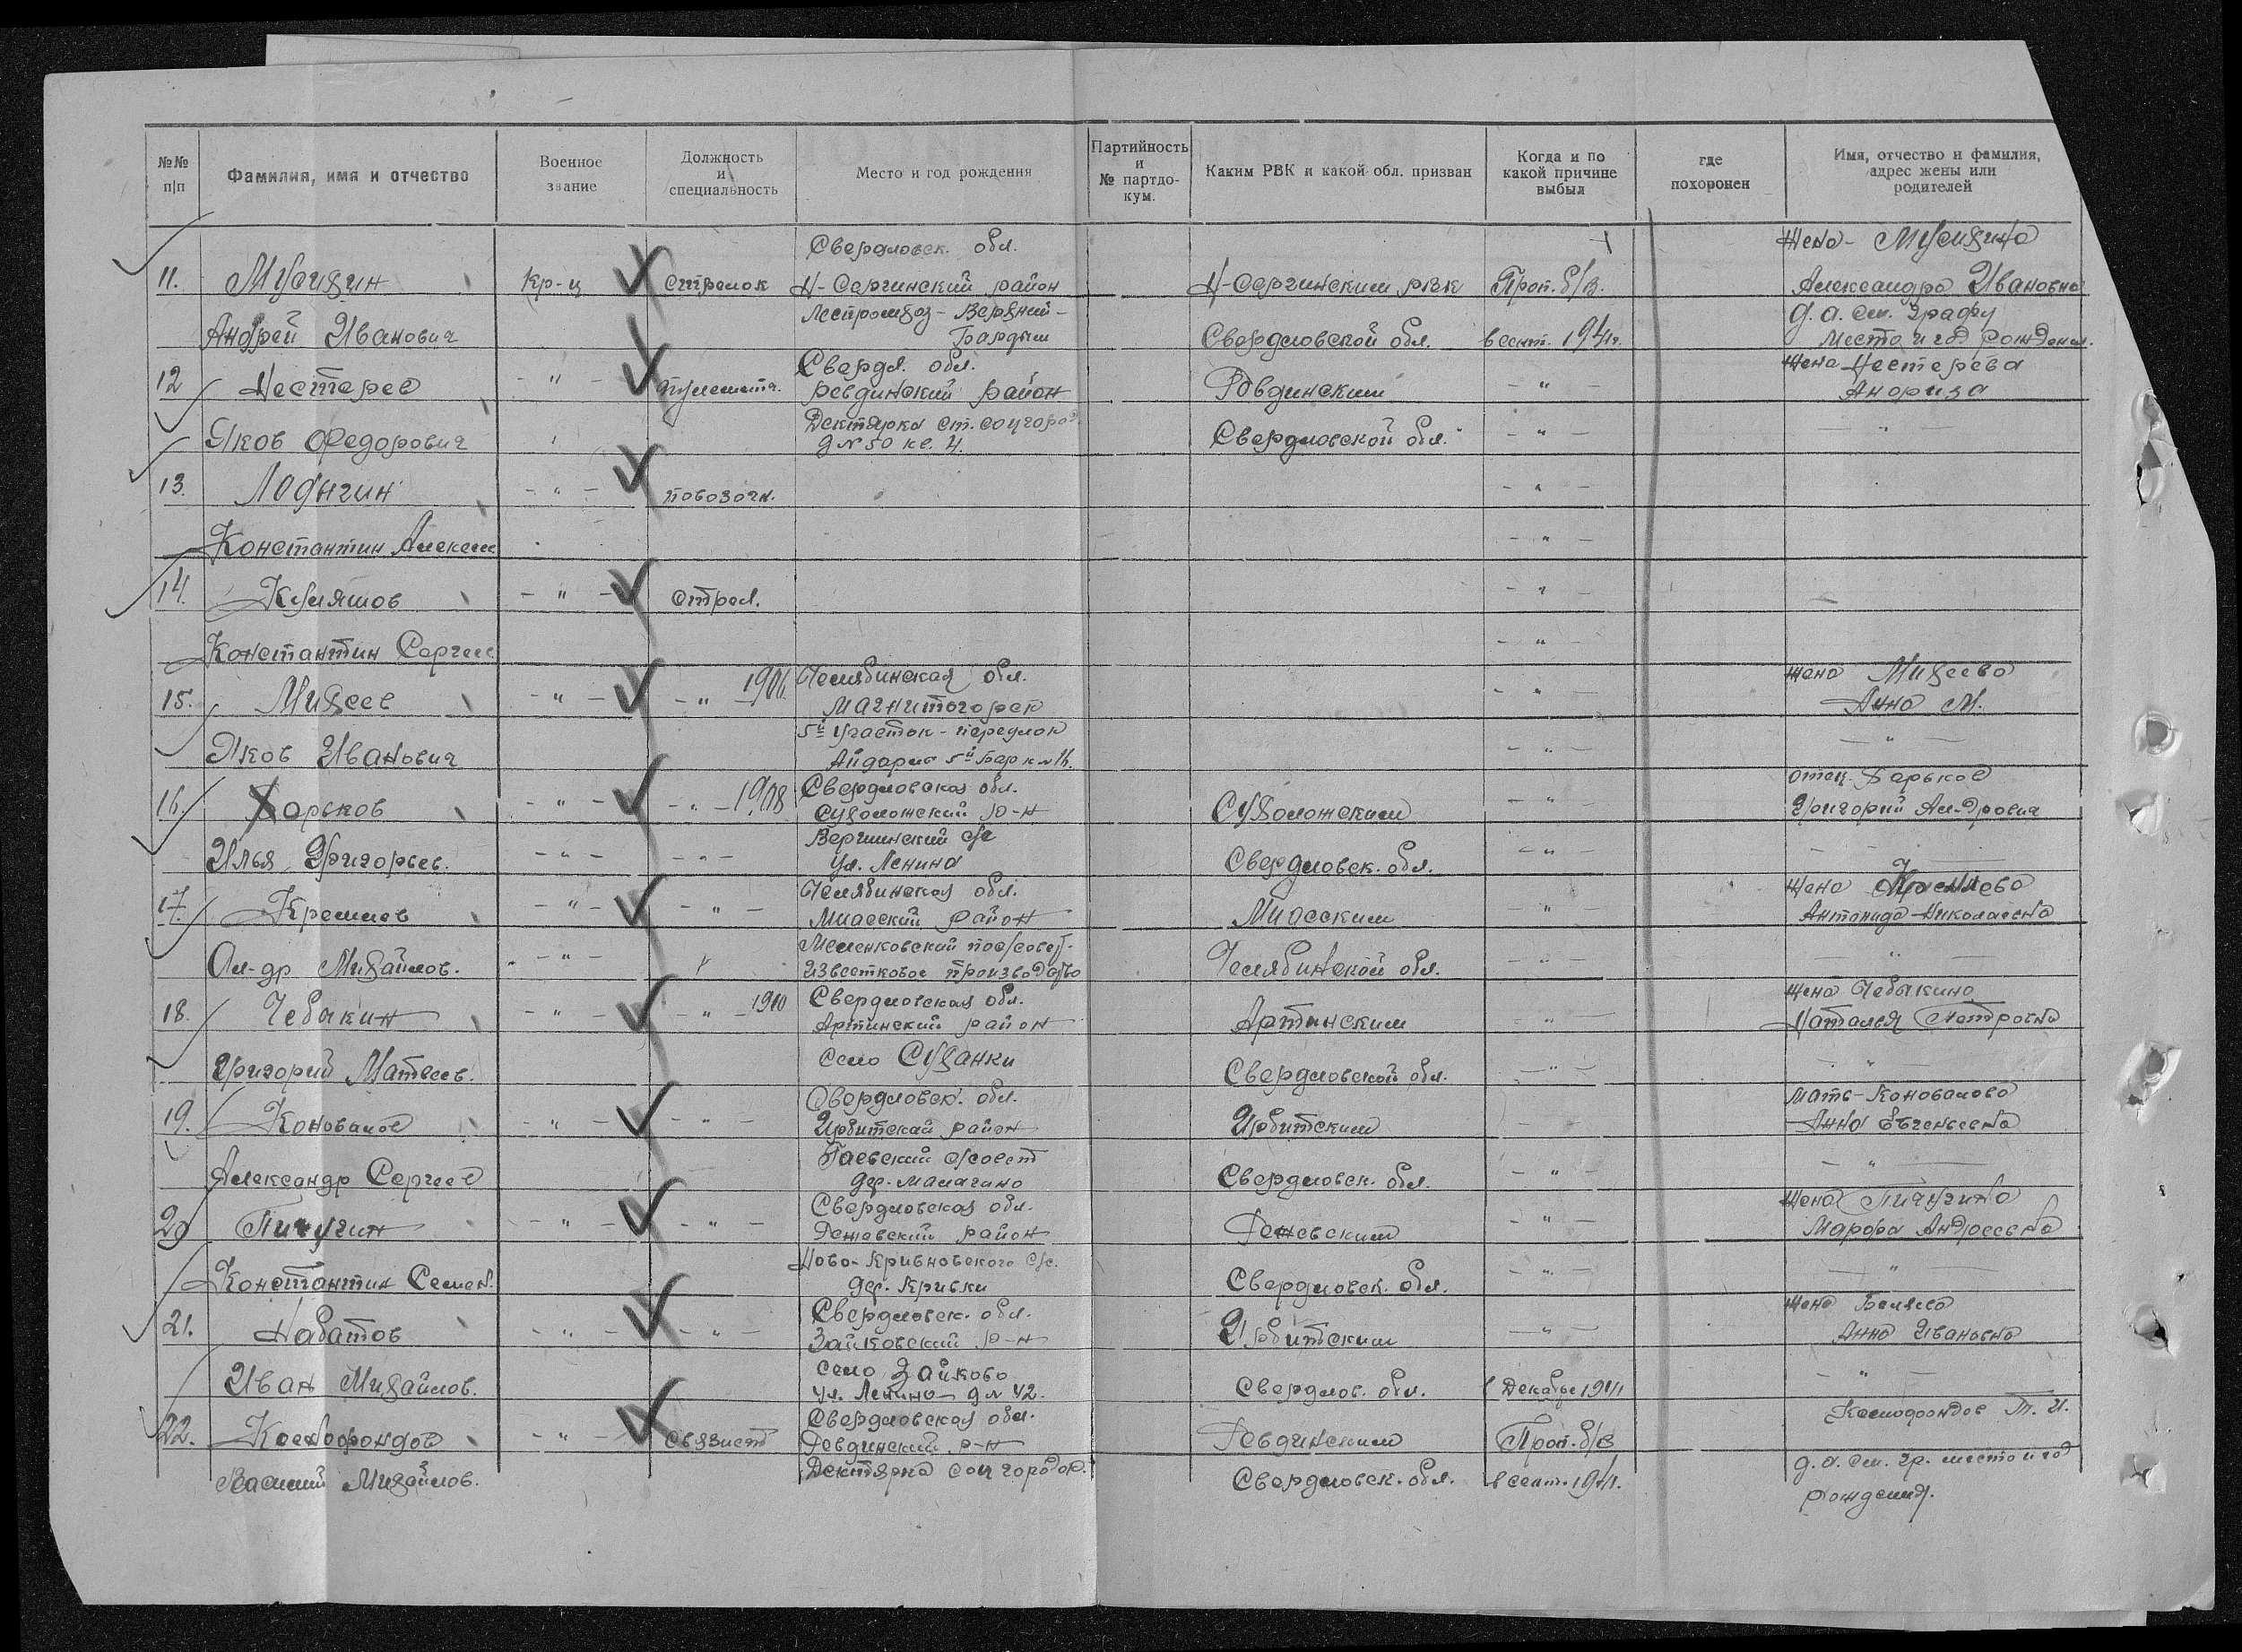 №№ п/п
Фамилия, имя и отчество
Военное звание
Должность и специальность
Место и год рождения
Партийность и № партдокум.
Каким РВК и какой обл. призван
Когда и по какой причине выбыл
где похоронен
Имя, отчество и фамилия, адрес жены или родителей
Свердловск. обл. жена-
11. кр-ц стрелок Н-Сергинский район Н-Сергинским РВК Проп. б/в. Александра Ивановна
Леспромхоз - Верхний - д. а. см. графу
Андрей Иванович Бардым Свердловской обл. в сент. 1941г. место и год рожден.
Свердл. обл. жена Нестерева
12 Нестерев - " - пулеметч. Ревдинский район Ревдинским - " -
Дектярка ст. соцгород
Яков Федорович д № 50 кв. 4. Свердловской обл. - " - - " -
13. Ладыгин - " - повозочн. - " -
Константин Алексеев - " -
14. Куляшов - " - стрел. - " -
Константин Сергеев - " -
Челябинская обл. жена Михеева
15. Михеев - " - - " - 1906 Магнитогорск - " - Анна М.
5й участок -
Яков Иванович 5й Барк №16. - " - - " -
Свердловская обл. отец- Харьков
16. Харьков - " - - " - 1908 Сухоложский р-н Сухоложским - " - Григорий Ал-дрович
с/с
Илья Григорьев. - " - - " - ул. Ленина Свердловск. обл. - " -
Челябинская обл. жена
17. Кремлев - " - - " - Миасский район Миасским - " - Николаевна
Ал-др Михайлов. - " - Известковое производство Челябинской обл. - " - - " -
1910 Свердловская обл. жена Чебыкина
18. Чебыкин - " - - " - Артинский район Артинским - " - Наталья Петровна
село Суханки
Григорий Матвеев. Свердловской обл. - " - - " -
Свердловск. обл. мать-Коновалова
19. Коновалов - " - - " - Ирбитский район Ирбитским Анна Евгеньевна
Гаевский с/совет
Александр Сергеев дер. Малагино Свердловск. обл. - " - - " -
Свердловская обл. жена Пичугина
20 Пичугин - " - - " - Режевский район Режевским - " - Марфа Андреевна
Ново-Кривковского с/с.
Константин Семен. дер. Кривки Свердловск. обл. - " - - " -
Свердловск. обл. жена
21. Набатов - " - - " - Зайковский р-н Ирбитским - " - Анна Ивановна
село Зайково
Иван Михайлов. ул. Ленина д № 42. Свердлов. обл. в декабре 1941 - " -
Свердловская обл.
22. - " - связист Ревдинский р-н Ревдинским Проп. б/в
Дектярка соцгород
Василий Михайлов. Свердловск. обл. в сент. 1941. д. а. см. гр. место и год
рождения.